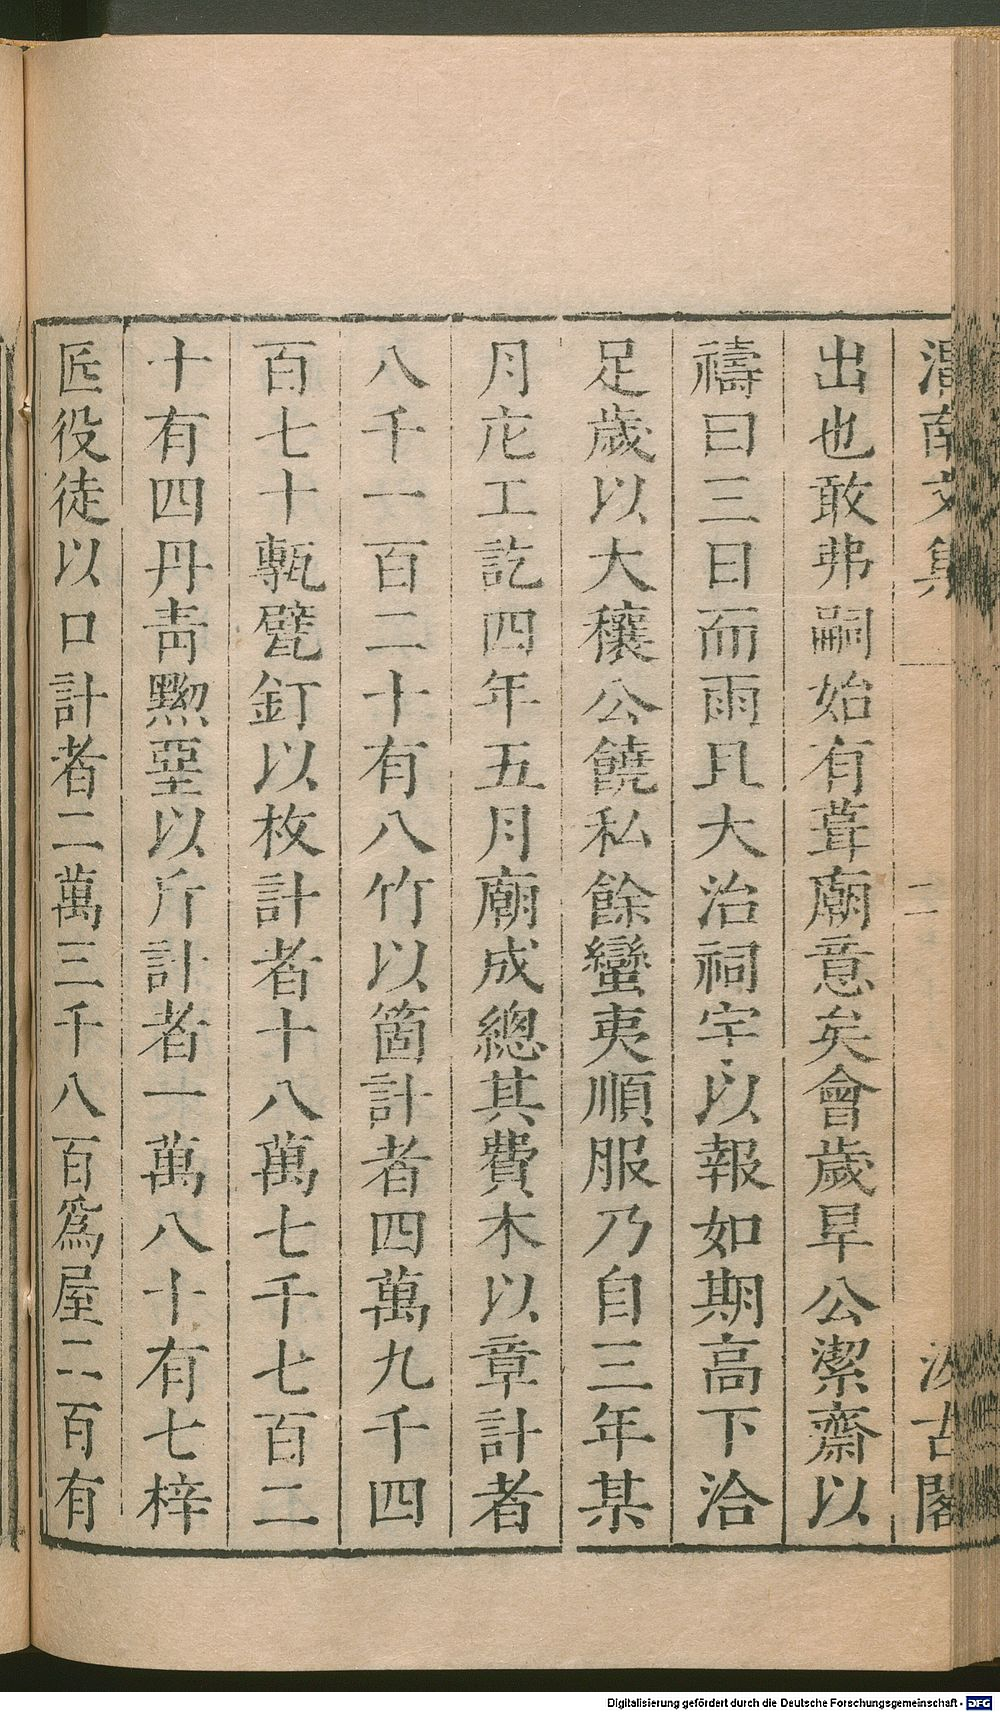 渭南文集 二 汲古閣
出也敢弗嗣始有葺廟意矣會歲旱公潔齋以
禱曰三日而雨且大治祠宇以報如期高下洽
足歲以大穰公饒私餘蠻夷順服乃自三年某
月庀工訖四年五月廟成總其費木以章計者
八千一百二十有八竹以箇計者四萬九千四
百七十甎甓釘以枚計者十八萬七千七百二
十有四丹靑黝堊以斤計者一萬八十有七梓
匠役徒以口計者二萬三千八百爲屋二百有
Digitalisierung gefördert durch die Deutsche Forschungsgemeinschaft - DFG